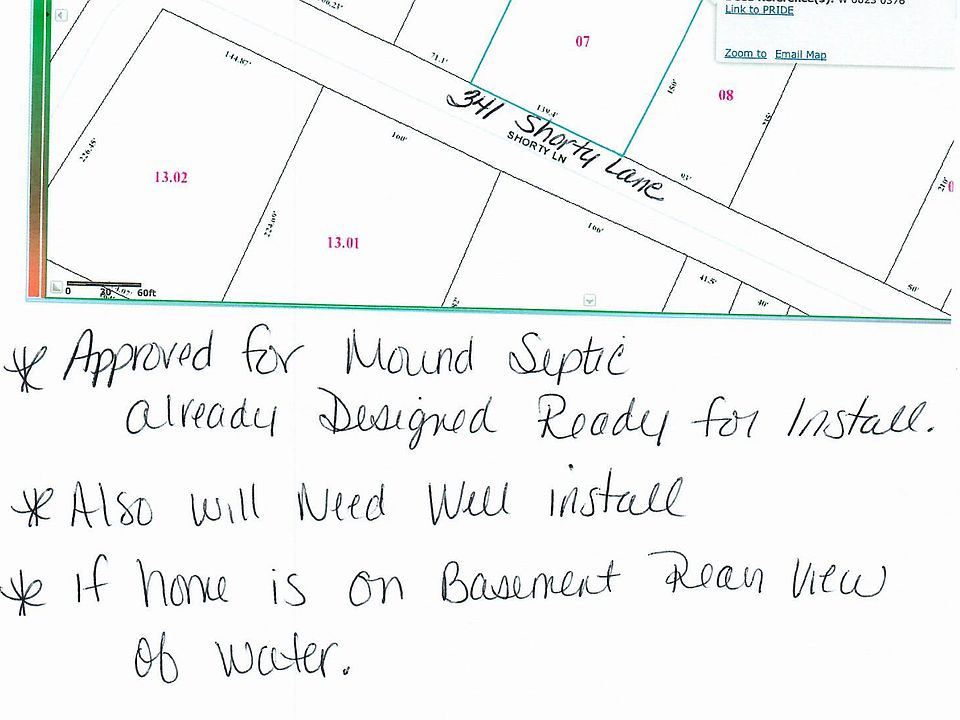 Link to PRIDE
Zoom to Email Map
71.1'
07
150'
08
235'
210'
144.87'
226.48'
13.02
224.09'
100'
13.01
139.4'
341 Shorty Lane
SHORTY LN
93'
100'
41.5'
40'
50'
0 20 60ft
* Approved for Mound Septic
already Designed Ready for Install.
* Also will Need Well install
* If home is on Basement Rear View
of water.